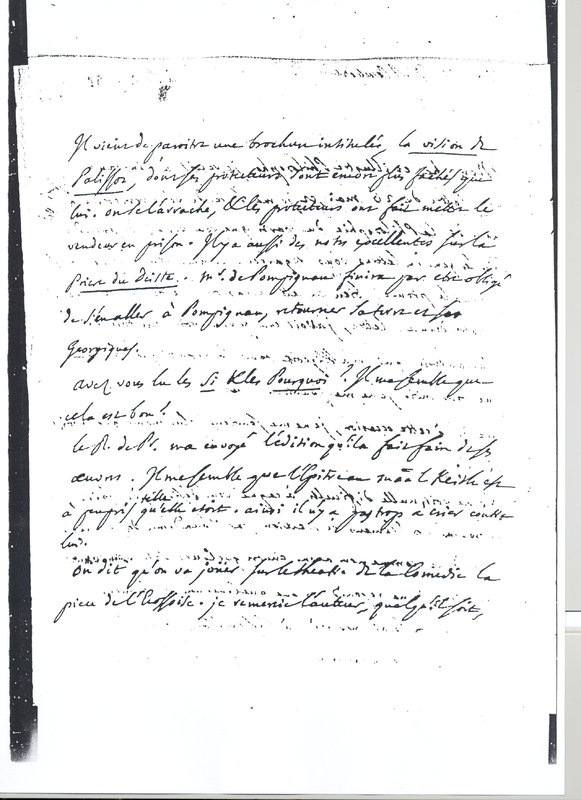 Il vient de paroitre une brochure intitulée, la vision de
Palissot, dont ses protecteurs sont encor plus fachés que
lui. on se l'arrache, & les protecteurs ont fait mettre le
vendeur en prison. Il y a aussi des notes excellentes sur la
Priere du Déiste. Mr. de Pompignan finira par etre obligé
de s'en aller à Pompignan, retourner sa terre et ses
Georgiques.
avez vous lu les Si & les Pourquoi? Il me semble que
cela est bon?
le R. de Pr. m'a envoyé l'édition qu'il a fait faire de ses
œuvres. Il me semble que l'Epitre au Keith est
à peu près telle qu'elle etoit. ainsi il n'y a pas trop à crier contre
lui.
On dit qu'on va jouer sur le theatre de la Comedie la
piece de l'Ecossoise. je remercie l'auteur, quel qu'il soit,